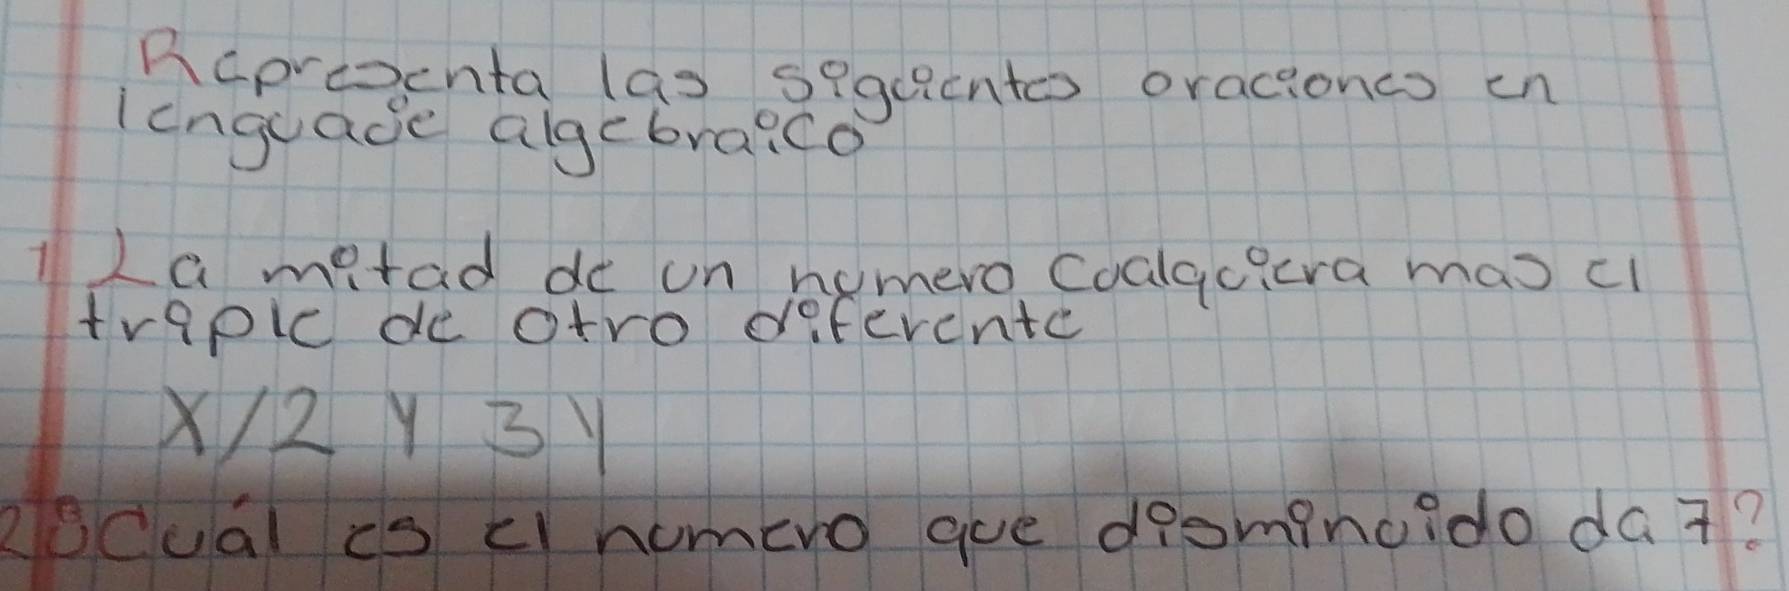 Representa las siguientes oraciones en
lenguaje algebraico
1 La mitad de un numero cualquiera mas el
triple de otro diferente
X/2 y 3y
2 ¿Cuál es el numero que disminuido da 7?